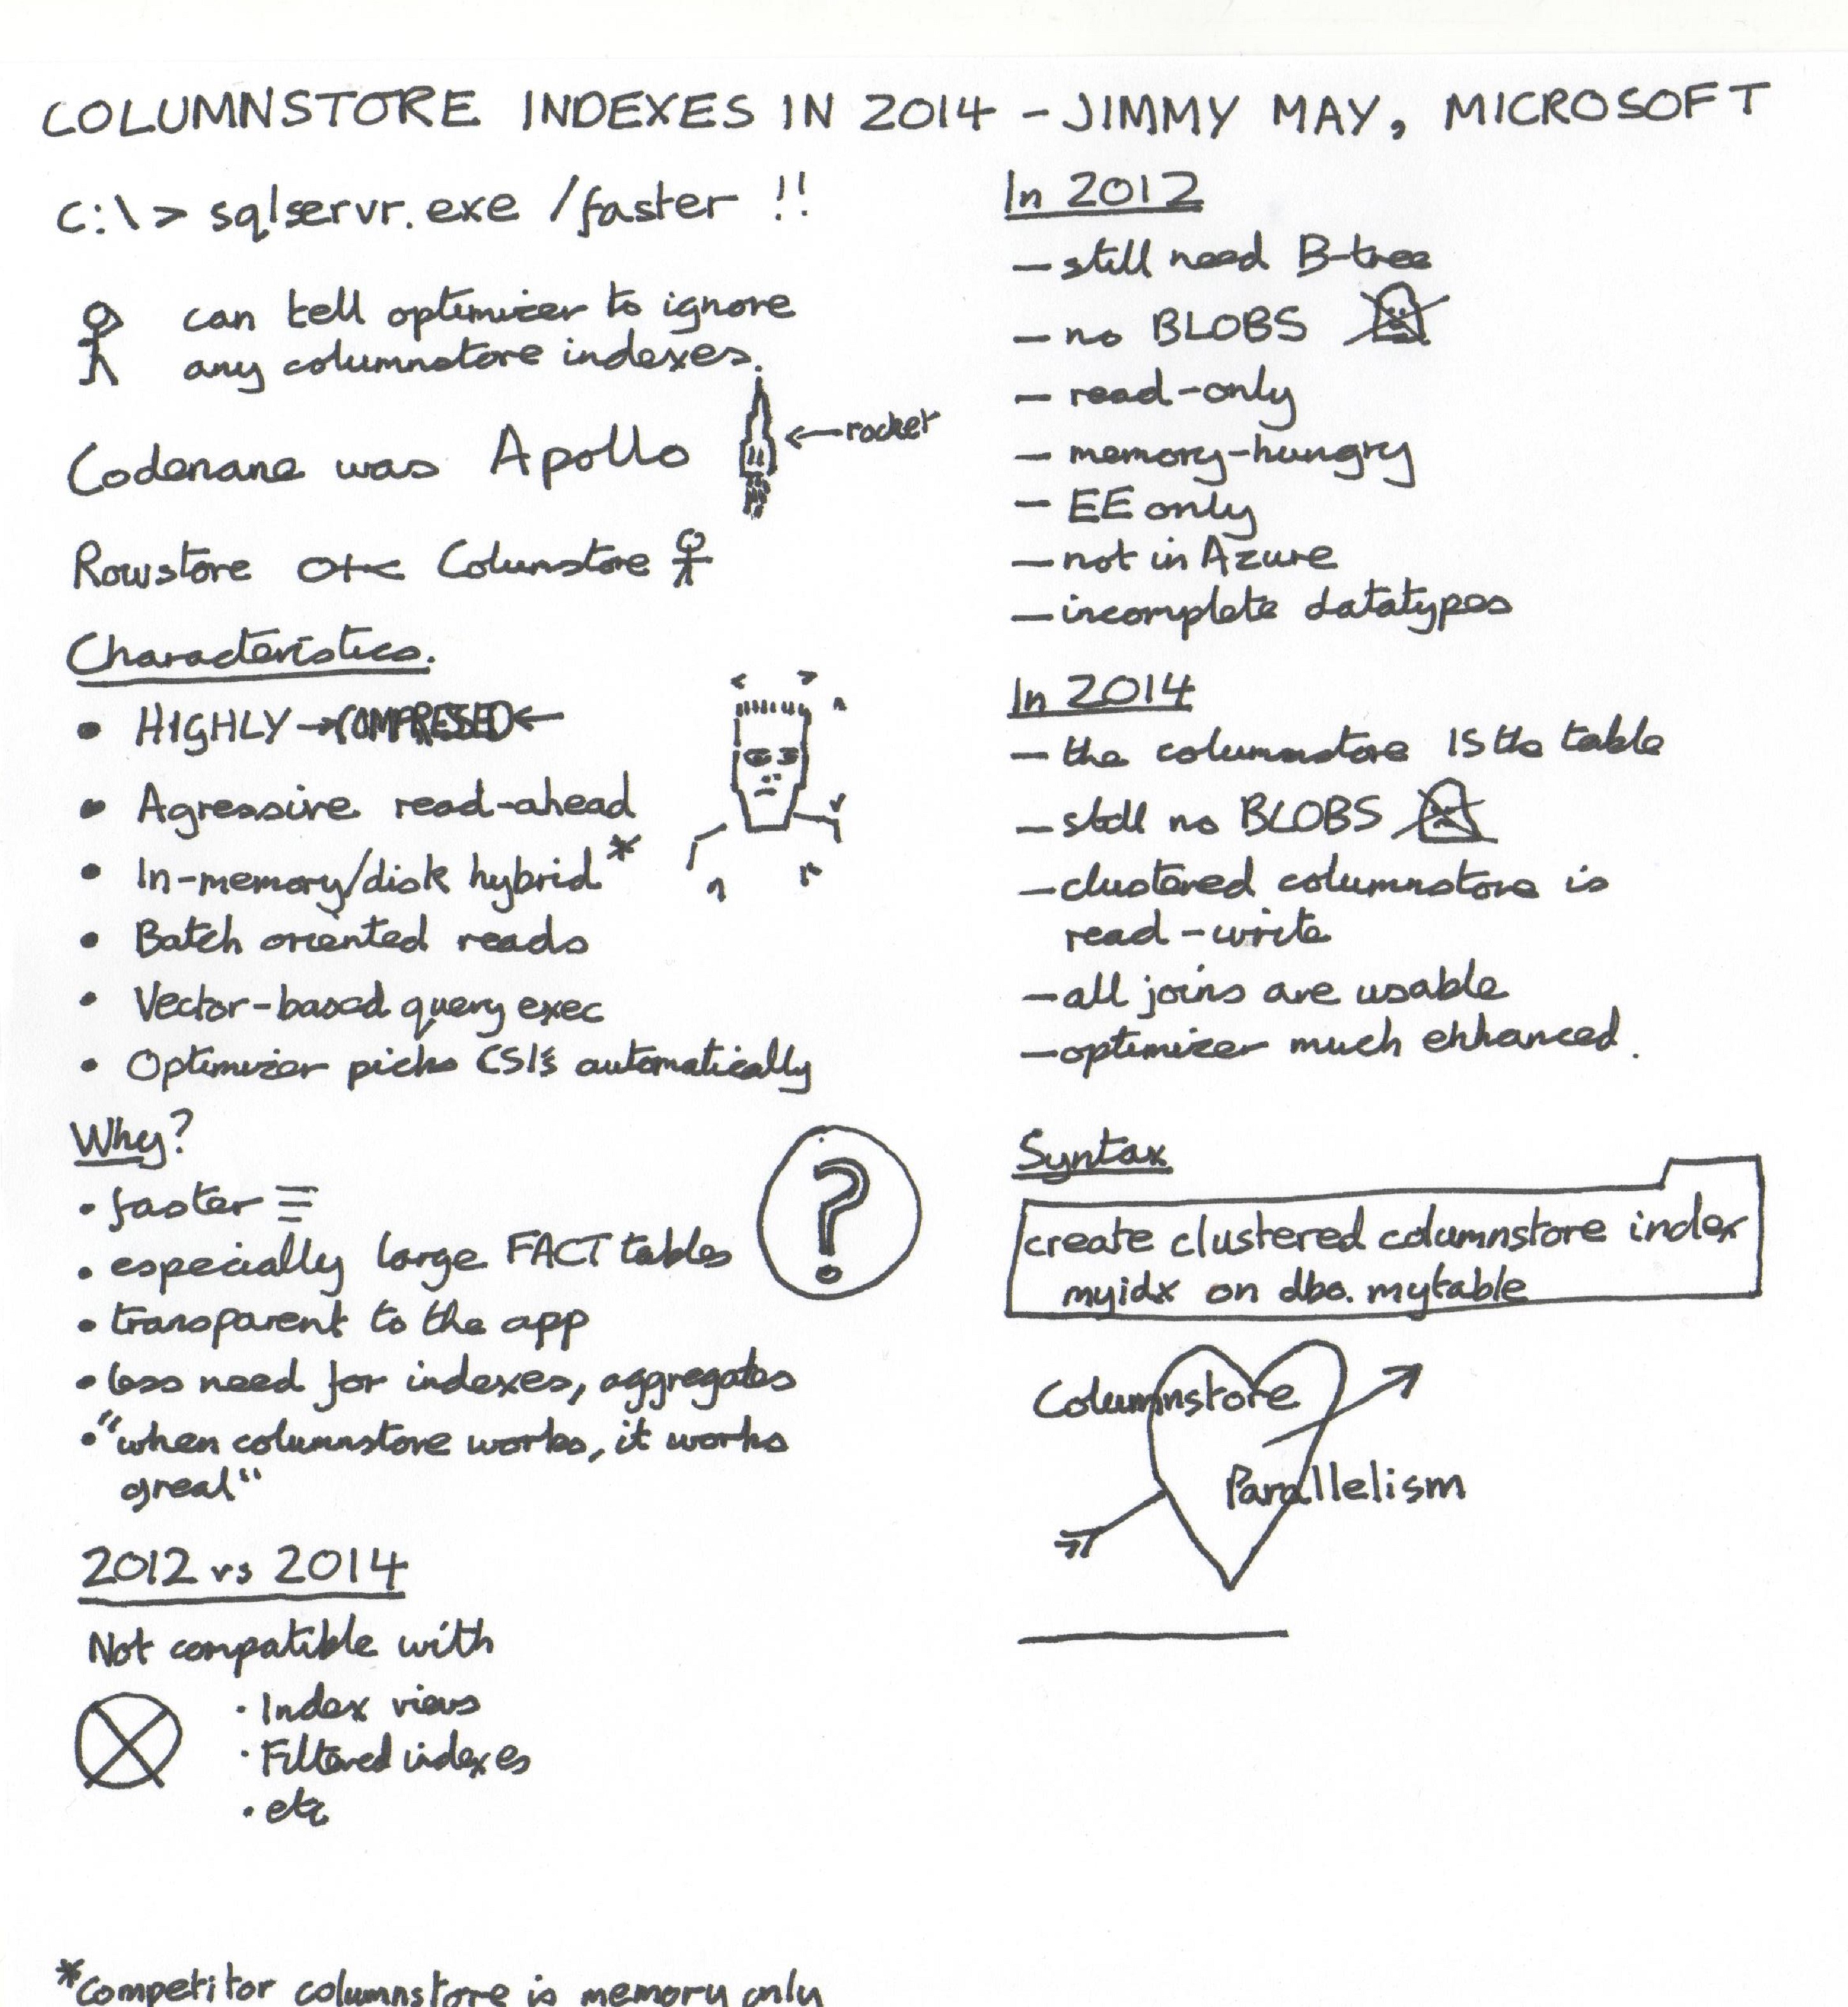 COLUMNSTORE INDEXES IN 2014 - JIMMY MAY, MICROSOFT
C:\> sqlservr.exe /faster !!
can tell optimizer to ignore
any columnstore indexes.
Codename was Apollo
←rocket
Rowstore Columstore
Characteristics.
• HIGHLY →COMPRESSED←
• Agressive read-ahead
• In-memory/disk hybrid*
• Batch oriented reads
• Vector-based query exec
• Optimizer picks CSI's automatically
Why?
• faster
• especially large FACT tables
?
• transparent to the app
• less need for indexes, aggregates
• "when columnstore works, it works
great"
2012 vs 2014
Not compatible with
• Index views
• Filtered indexes
• etc
*Competitor columnstore is memory only
In 2012
- still need B-tree
- no BLOBS
- read-only
- memory-hungry
- EE only
- not in Azure
- incomplete datatypes
In 2014
- the columnstore IS the table
- still no BLOBS
- clustered columnstore is
read-write
- all joins are usable
- optimizer much enhanced.
Syntax
create clustered columnstore index
myidx on dbo.mytable
Columnstore
Parallelism